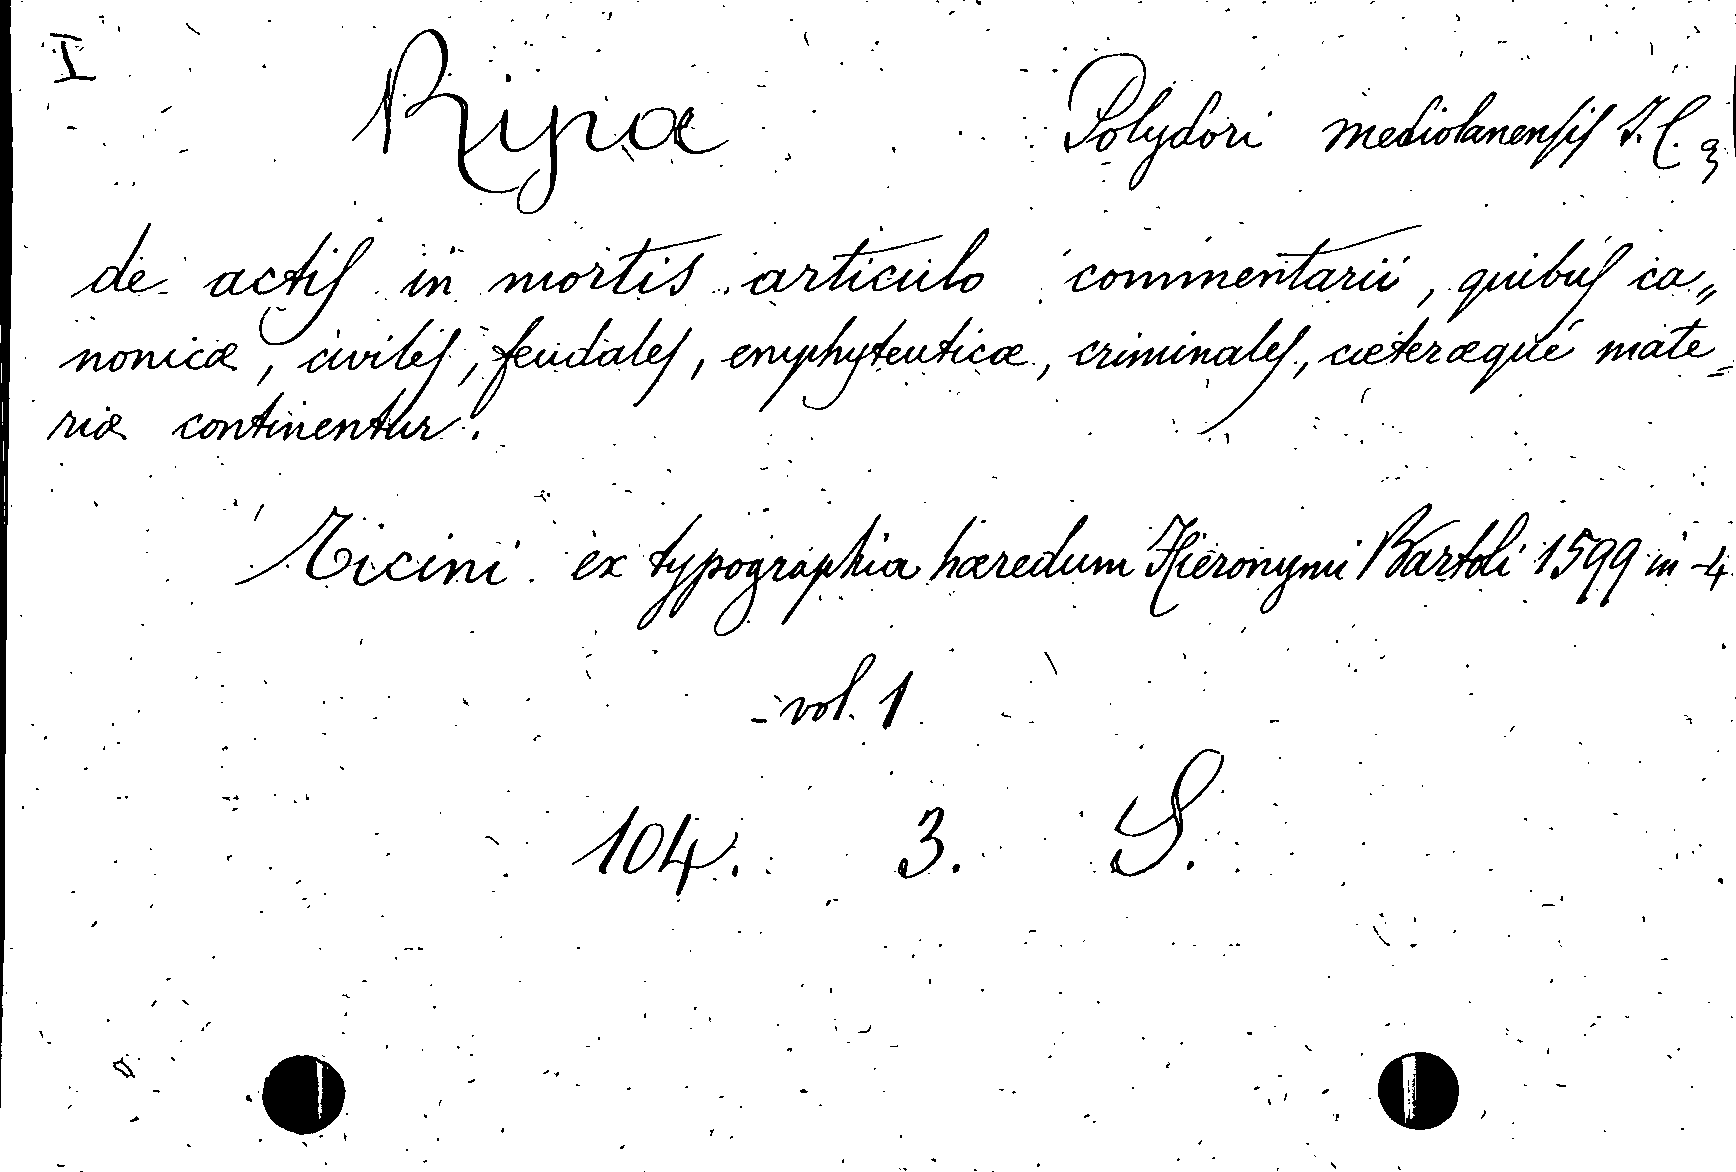 I
Ripæ Polydori mediolanensis I. C. &
de actis in mortis articulo commentarii, quibus ca„
nonicæ, civiles, feudales, emphyteuticæ, criminales, cæteræque mate„
riæ continentur.
Ticini ex typographia hæredum Hieronymi Bartoli 1599 in 4
- vol. 1
104. 3. S.